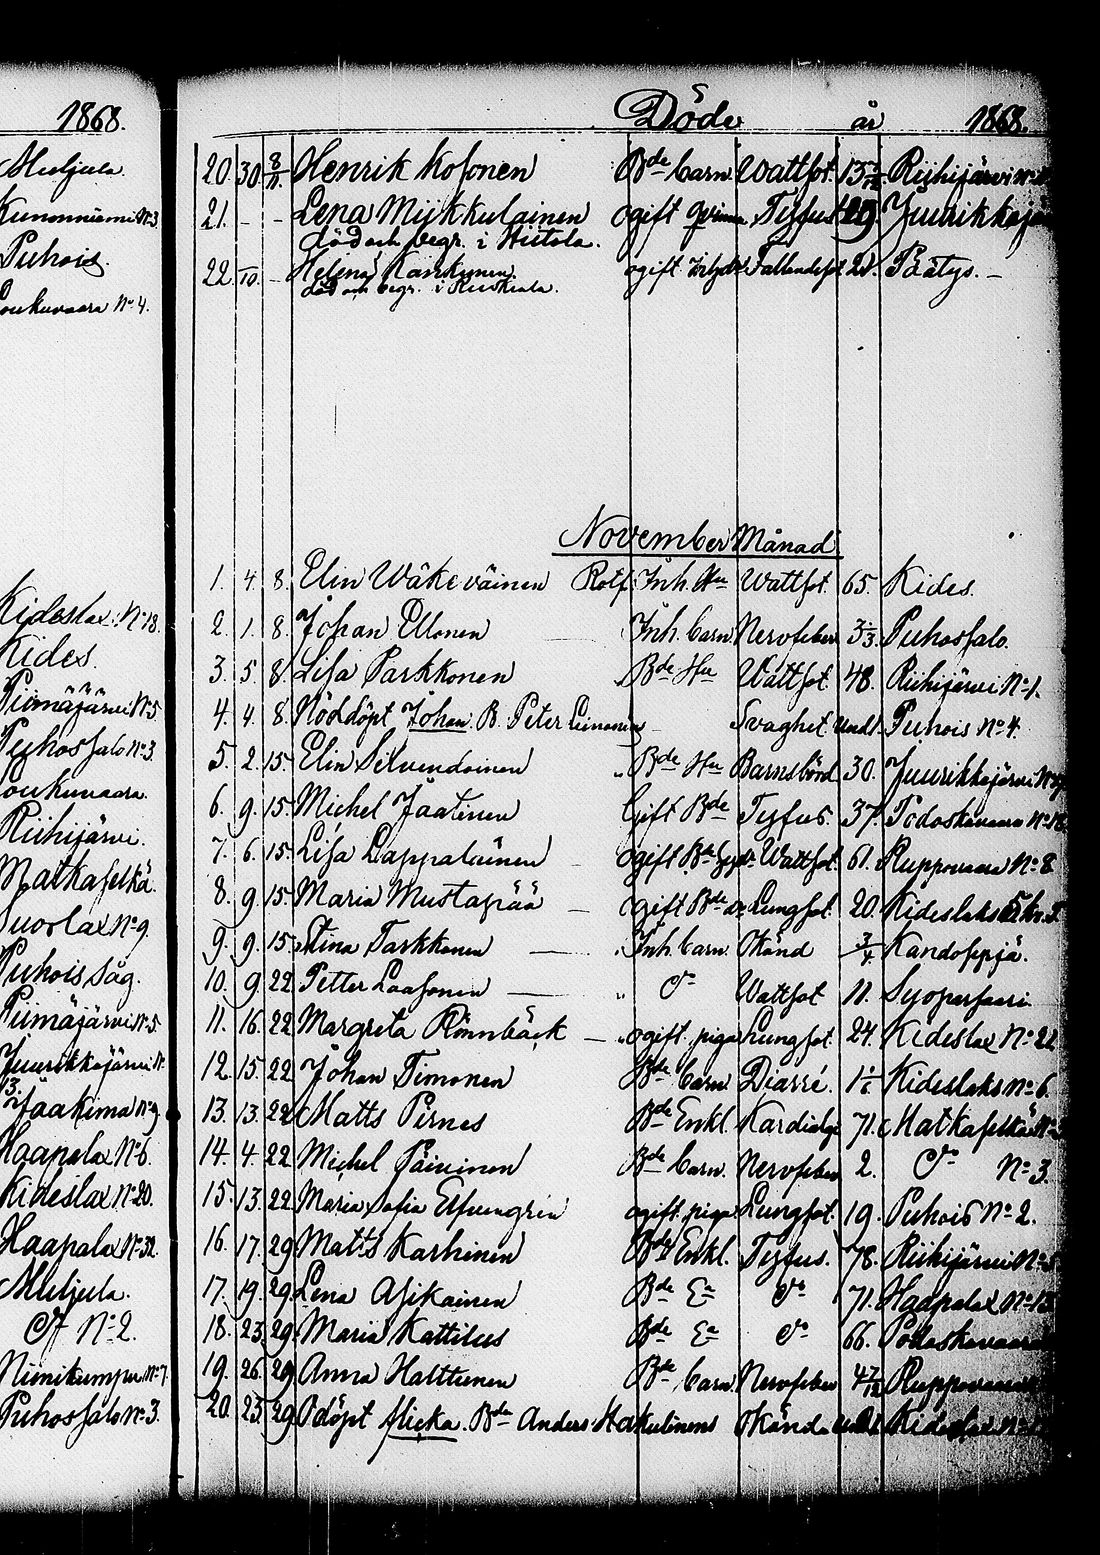 1868.
Muljula.
Kunonniemi No 3
Puhois.
Loukuvaara No 4.
Kideslax No 18.
Kides.
Piimäjärvi No 5
Puhossalo No 3.
Loukuvaara.
Riihijärvi.
Matkaselkä.
Suorlax No 9.
Puhois Såg.
Piimäjärvi No 5
Juurikkajärvi No
13.
Jaakima No 9
Haapalax No 6.
Kideslax No 20.
Haapalax No 32.
Muljula.
No 2.
Niinikumpu No 7
Puhossalo No 3.
Döde år 1868.
20. 30 8/11 Henrik Kosonen Bde barn Wattsot. 13 Riihijärvi No
21. - - Lena Miikkulainen ogift qvinna Tyfus 29. Juurikkajär
död och begr. i Hiitola.
22 10. - Helena Kankunen. ogift Fallandesot 21. Päätys. -
död och begr. i Ruskeala.
November Månad
1. 4. 8. Elin Wäkeväinen Rotf. Inh. Hu Wattsot. 65. Kides.
2. 1. 8. Johan Ellonen Inh. barn Nervfeber 3 Puhossalo.
3. 5. 8. Lisa Parkkonen Bde Hu Wattsot. 48. Riihijärvi No 1.
4. 4. 8. Nöddöpt Johan. B. Peter Leinonen Svaghet und. 1. Puhois No 4.
5. 2. 15. Elin Silvendoinen Bde Hu Barnsbörd 30. Juurikkajärvi No
6. 9. 15. Michel Jaatinen Gift Bde Tyfus. 37. Podoskavaara No 18
7. 6. 15. Lisa Lappalainen ogift Bde Wattsot. 61. Ruppovaara No 8
8. 9. 15. Maria Mustapää ogift Bde Lungsot. 20. Kideslaks
9. 9. 15. Stina Tarkkonen Inh. barn. Okänd 3/4 Kandosyrjä.
10. 9. 22 Petter Laasonen Wattsot 11. Syopersaari
11. 16. 22. Margreta Rönnbäck ogift piga Lungsot. 24. Kideslax No 22
12. 15. 22 Johan Timonen Bde barn Diarré. 1 Kideslaks No 6.
13. 13. 22 Matts Pirnes Bde Enkl. Kardialgi 71. Matkaselkä No
14. 4. 22 Michel Päivinen Bde barn. Nervfeber 2. do No 3.
15. 13. 22. Maria Sofia Elfvengrén ogift piga Lungsot. 19. Puhois No 2.
16. 17. 29 Matts Karhinen Bde Enkl. Tyfus. 78. Riihijärvi No 5
17. 19. 29. Lena Asikainen Bde Ea do 71. Haapalax No 13
18. 23. 29. Maria Kattilus Bde Ea do 66. Podoskavaara
19. 26. 29 Anna Halttunen Bde barn Nervfeber 4 7/12 Ruppovaara
20. 23. 29. Odöpt flicka. Bde Anders Hakulinens Okänd und. 1. Kideslax No